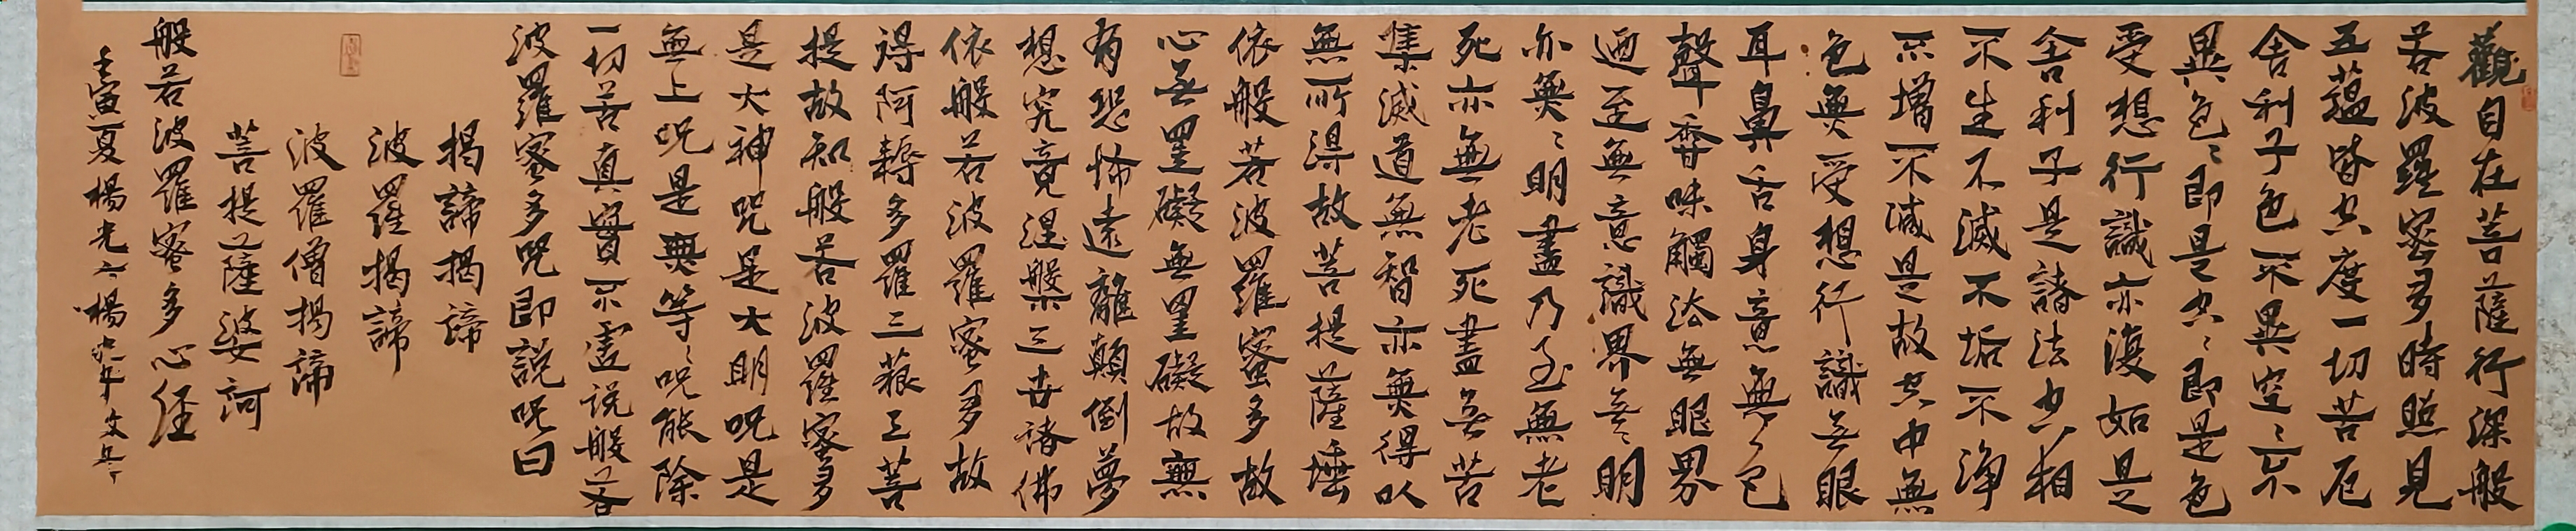 觀自在菩薩行深般
若波羅蜜多時照見
五蘊皆空度一切苦厄
舍利子色不異空〻不
異色〻即是空〻即是色
受想行識亦復如是
舍利子是諸法空相
不生不滅不垢不淨
不增不減是故空中無
色無受想行識無眼
耳鼻舌身意無色
聲香味觸法無眼界
迺至無意識界無〻明
亦無〻明盡乃至無老
死亦無老死盡無苦
集滅道無智亦無得以
無所得故菩提薩埵
依般若波羅蜜多故
心無罣礙無罣礙故無
有恐怖遠離顛倒夢
想究竟涅槃三世諸佛
依般若波羅蜜多故
得阿耨多羅三藐三菩
提故知般若波羅蜜多
是大神咒是大明咒是
無上咒是無等〻咒能除
一切苦真實不虛說般若
波羅蜜多咒即說咒曰
揭諦揭諦
波羅揭諦
波羅僧揭諦
菩提薩婆訶
般若波羅蜜多心經
壬寅夏楊光